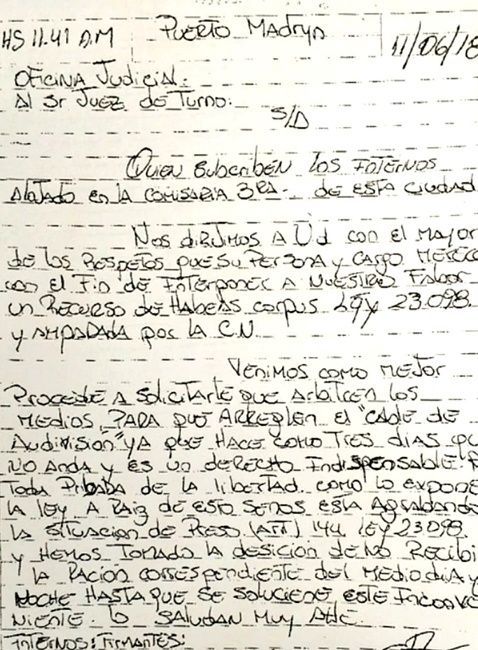 HS 11.41 A.M Puerto Madryn 11/06/18
Oficina Judicial:
Al Sr Juez de Turno:
S/D
Quien subscriben los Internos
Alojado en la comisaria 3RA- de esta ciudad
Nos dirijimos a Ud con el mayor
de los Respetos que su persona y cargo merece
con el Fin de Interponer a nuestro Fabor
un Recurso de Habeas corpus Ley 23.098.
y amparada por la C.N.
Venimos como mejor
Procede a solicitarle que arbitren los
medios, para que arreglen el "cable de
Audivision" ya que hace como tres dias qu
no anda y es un derecho Indispensable. P
toda Pribada de la libertad como lo expone
la ley A raiz de esto se nos esta Agrabando
la situacion de Preso (ART) 144 Ley 23098.
y hemos tomado la desicion de no Recibi
la Racion correspondiente del mediodia y
noche hasta que se solucione este Inconve
niente. lo saludan muy Atte.
Internos: Firmantes: